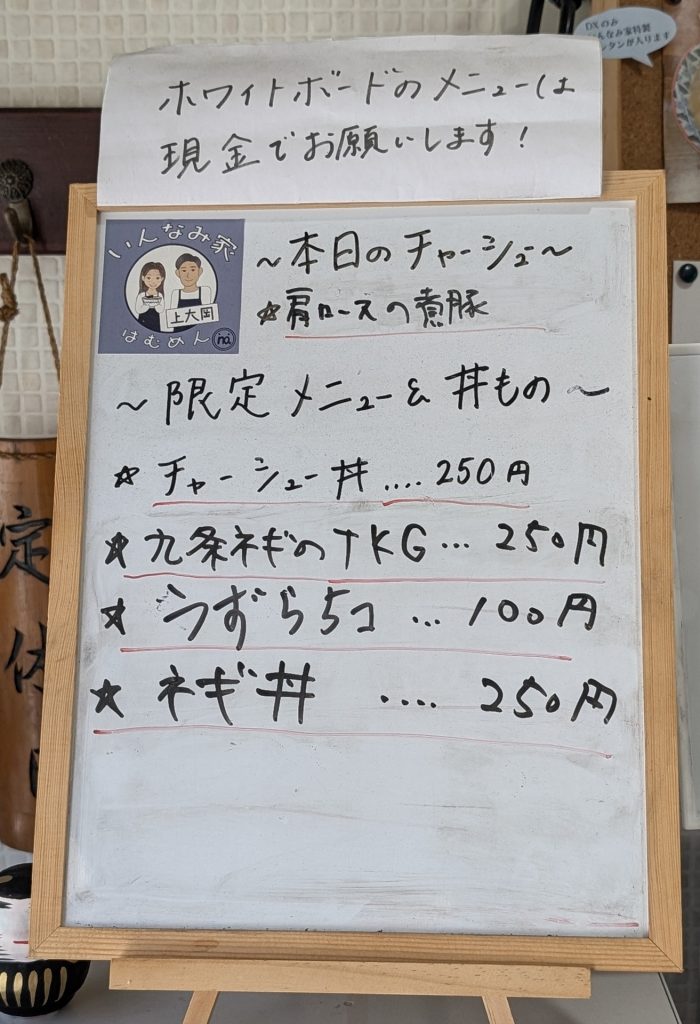 DXのみ
んなみ家特製
ンタンが入ります
ホワイトボードのメニューは
現金でお願いします!
いんなみ家
上大岡
はむめん
~本日のチャーシュー~
☆肩ロースの煮豚
~限定メニュー&丼もの~
☆チャーシュー丼....250円
☆九条ネギのTKG...250円
☆うずら5コ...100円
☆ネギ丼....250円
定
休
日